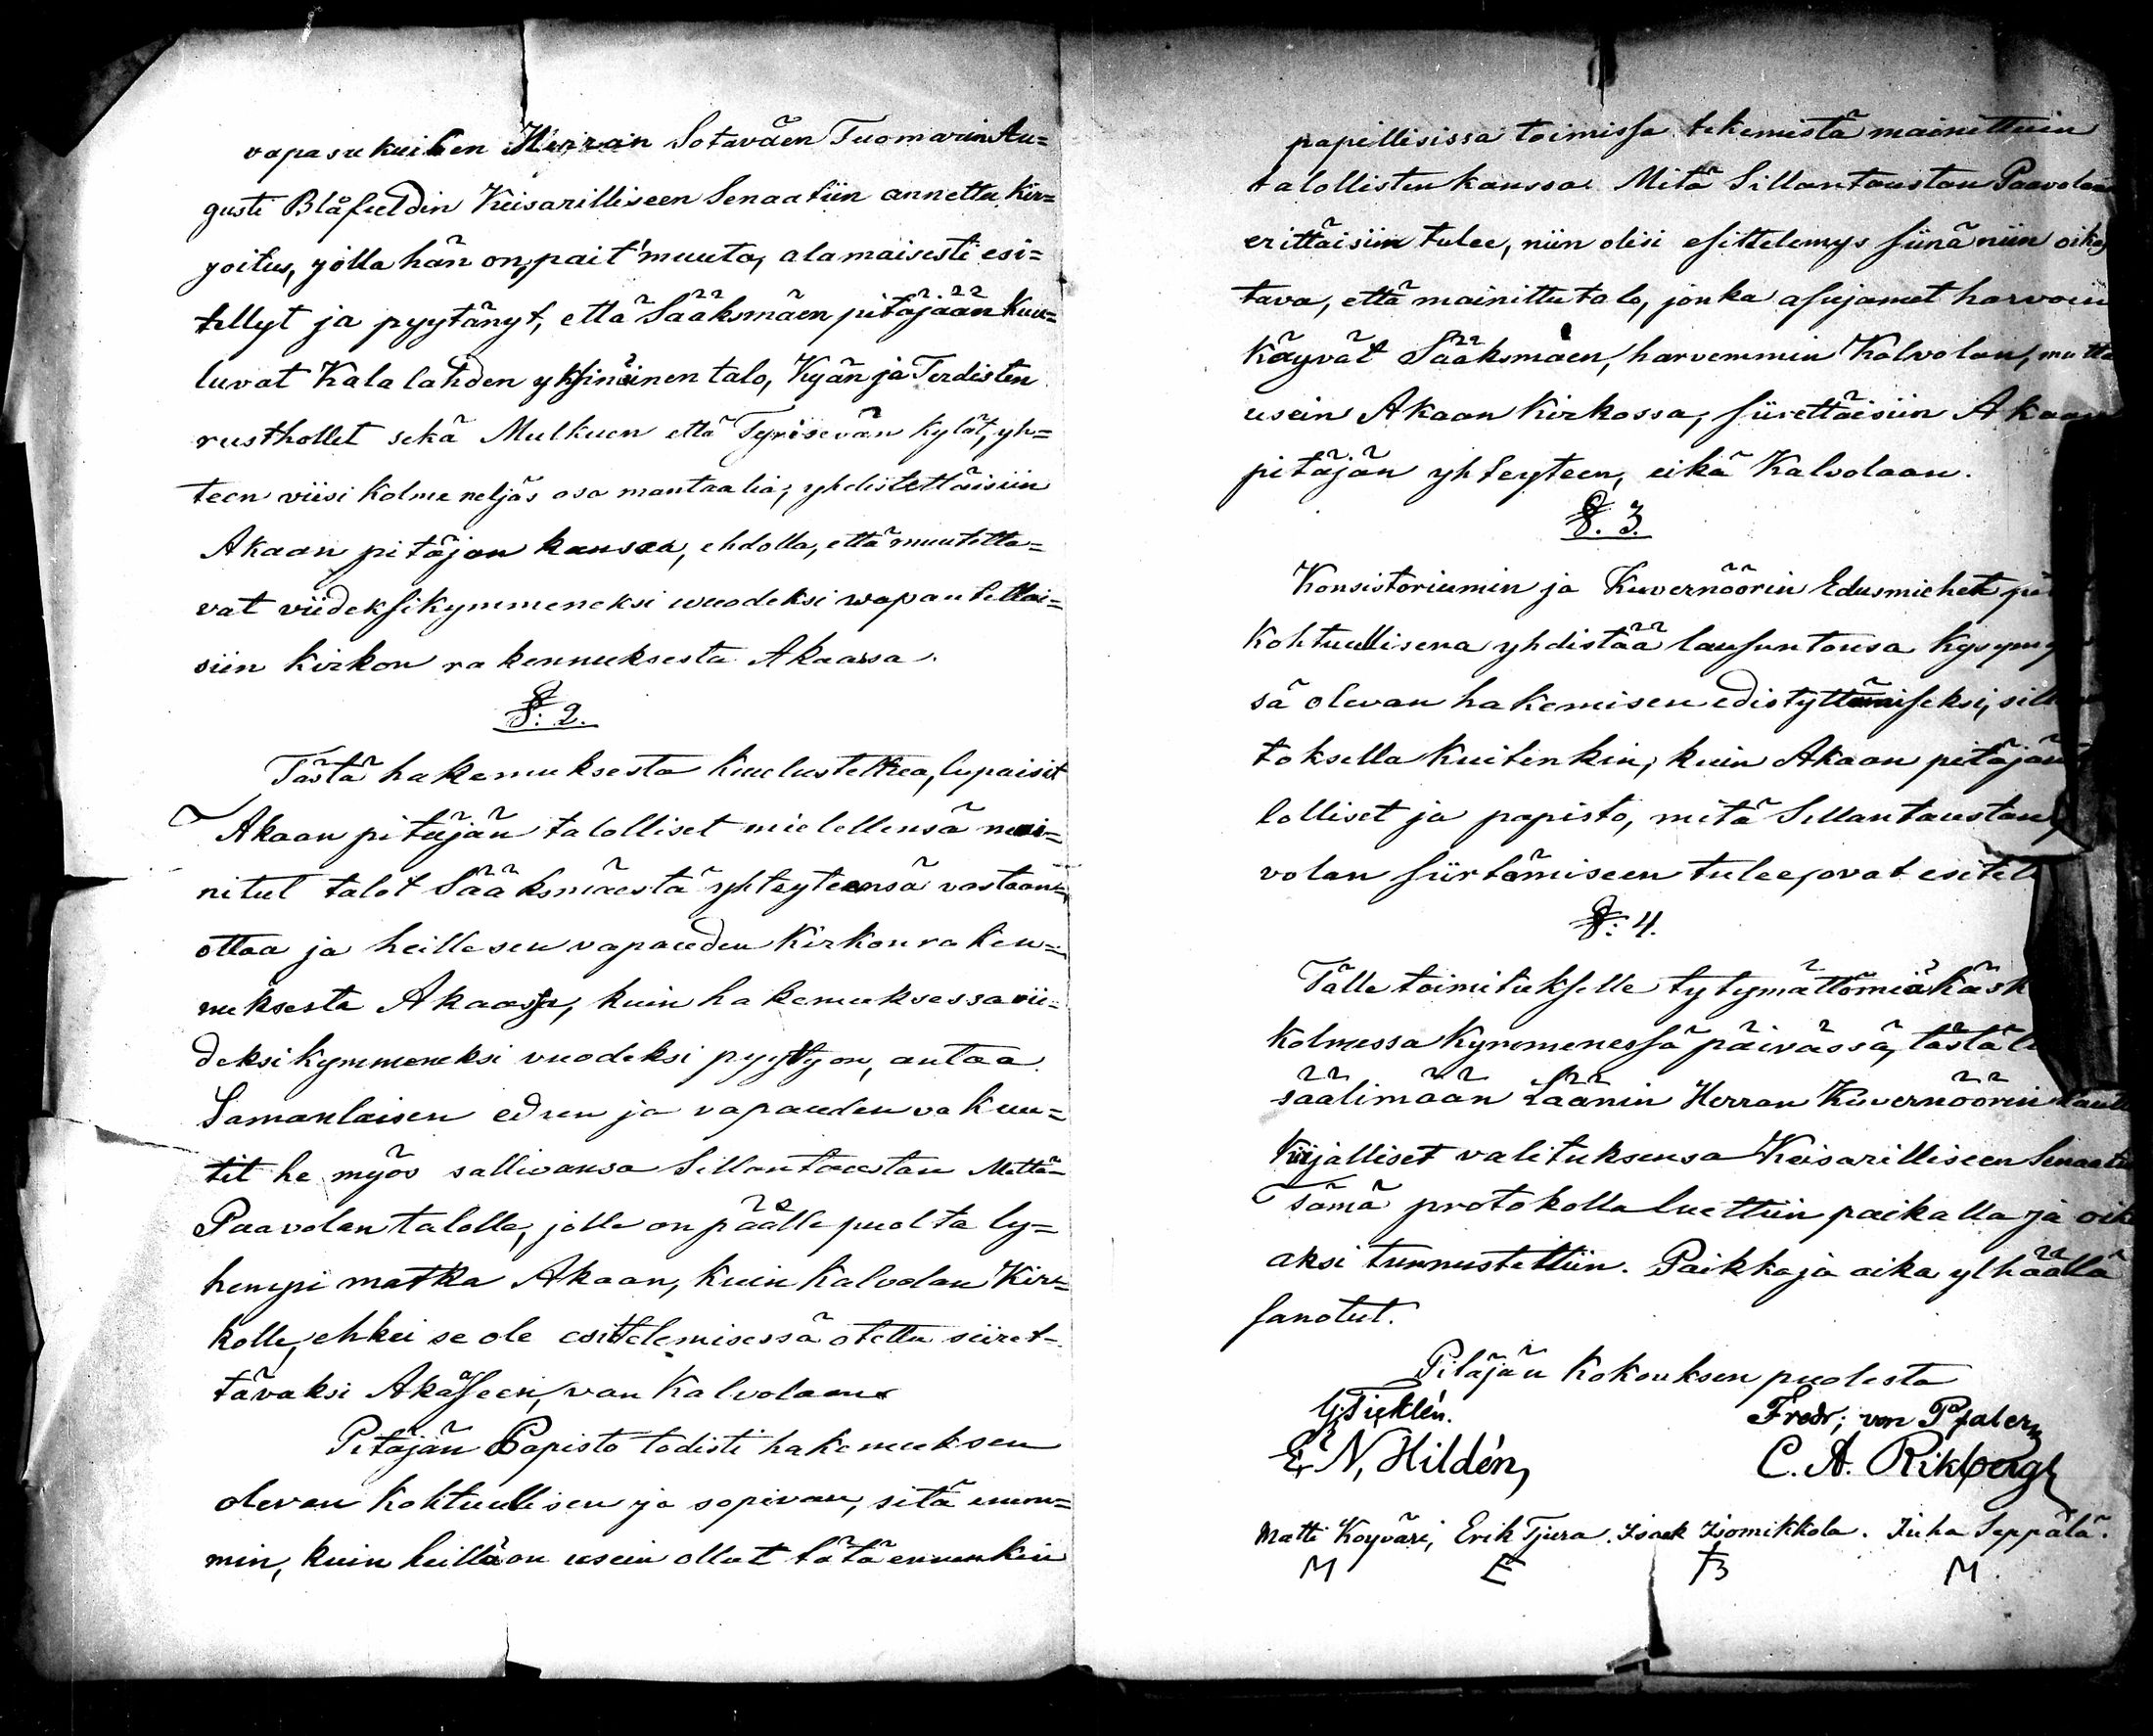 vapasukuisen Herran Sotaväen Tuomarin Au=
gusti Blåfieldin Keisarilliseen Senaatiin annettu kir=
joitus, jolla hän on, pait' muuta, alamaisesti esi=
tellyt ja pyytänyt, että Sääksmäen pitäjään kuu=
luvat Kalalahden yksinäinen talo, Kyän ja Terdisten
rusthollit sekä Mulkuen että Tyrisevän kylät, yh=
teen viisi kolme neljäs osa mantaalia, yhdistettäisiin
Akaan pitäjän kanssa, ehdolla, että muutetta=
vat viideksikymmeneksi wuodeksi wapautettai=
siin kirkon rakennuksesta Akaassa.
§: 2.
Tästä hakemuksesta kuulusteltua, lupaisit
Akaan pitäjän talolliset mielellensä mai=
nitut talot Sääksmäestä yhteyteensä vastaan=
ottaa ja heille sen vapauden kirkon raken=
nuksesta Akaassa, kuin hakemuksessa vii=
deksikymmeneksi vuodeksi pyytty on, antaa.
Samanlaisen edun ja vapauden vakuu=
tit he myös sallivansa Sillantaustan Mattä=
Paavolan talolle, jolle on päälle puolta ly=
hempi matka Akaan, kuin Kalvolan Kir=
kolle, ehkei se ole esittelemisessä otettu siiret=
täväksi Akaseen, van Kalvolaan.
Pitäjän Papisto todisti hakemuksen
olevan kohtuullisen ja sopivan, sitä enem=
min, kuin heillä on usein ollut tätä ennenkin
papillisissa toimissa tekemistä mainittuin
talollisten kanssa. Mitä Sillantaustan Paavolan
erittäisiin tulee, niin olisi esittelemys siinä niin oikas
tava, että mainittu talo, jonka asujamet harvoin
käyvät Sääksmäen, harvemmin Kalvolan, mutta
usein Akaan Kirkossa, siirettäisiin Akaan
pitäjän yhteyteen, eikä Kalvolaan.
§. 3.
Konsistoriumin ja Kuvernöörin Edusmiehet
kohtuullisena yhdistää lausuntonsa kysymy
sä olevan hakemisen edistyttämiseksi,
toksella kuitenkin, kuin Akaan pitäjän
lolliset ja papisto, mitä Sillantaustan
volan siirtämiseen tulee, ovat esitel
§: 4.
Tälle toimitukselle tytymättömiä käsk
kolmessa kymmenessä päivässä, tästä
säälimään Läänin Herran Kuvernöörin kautt
kirjalliset valituksensa Keisarilliseen Senaati
Tämä protokolla luettiin paikalla ja oik
aksi tunnustettiin. Paikka ja aika ylhäällä
sanotut.
Pitäjän Kokouksen puolesta
G. Ticklén. Fredr; von Pfaler
E. N. Hildén, C. A. Rikberg
Matti Koyväri, Erik Tjura. Isaek Isomikkola. Juha Seppälä.
M E B M.